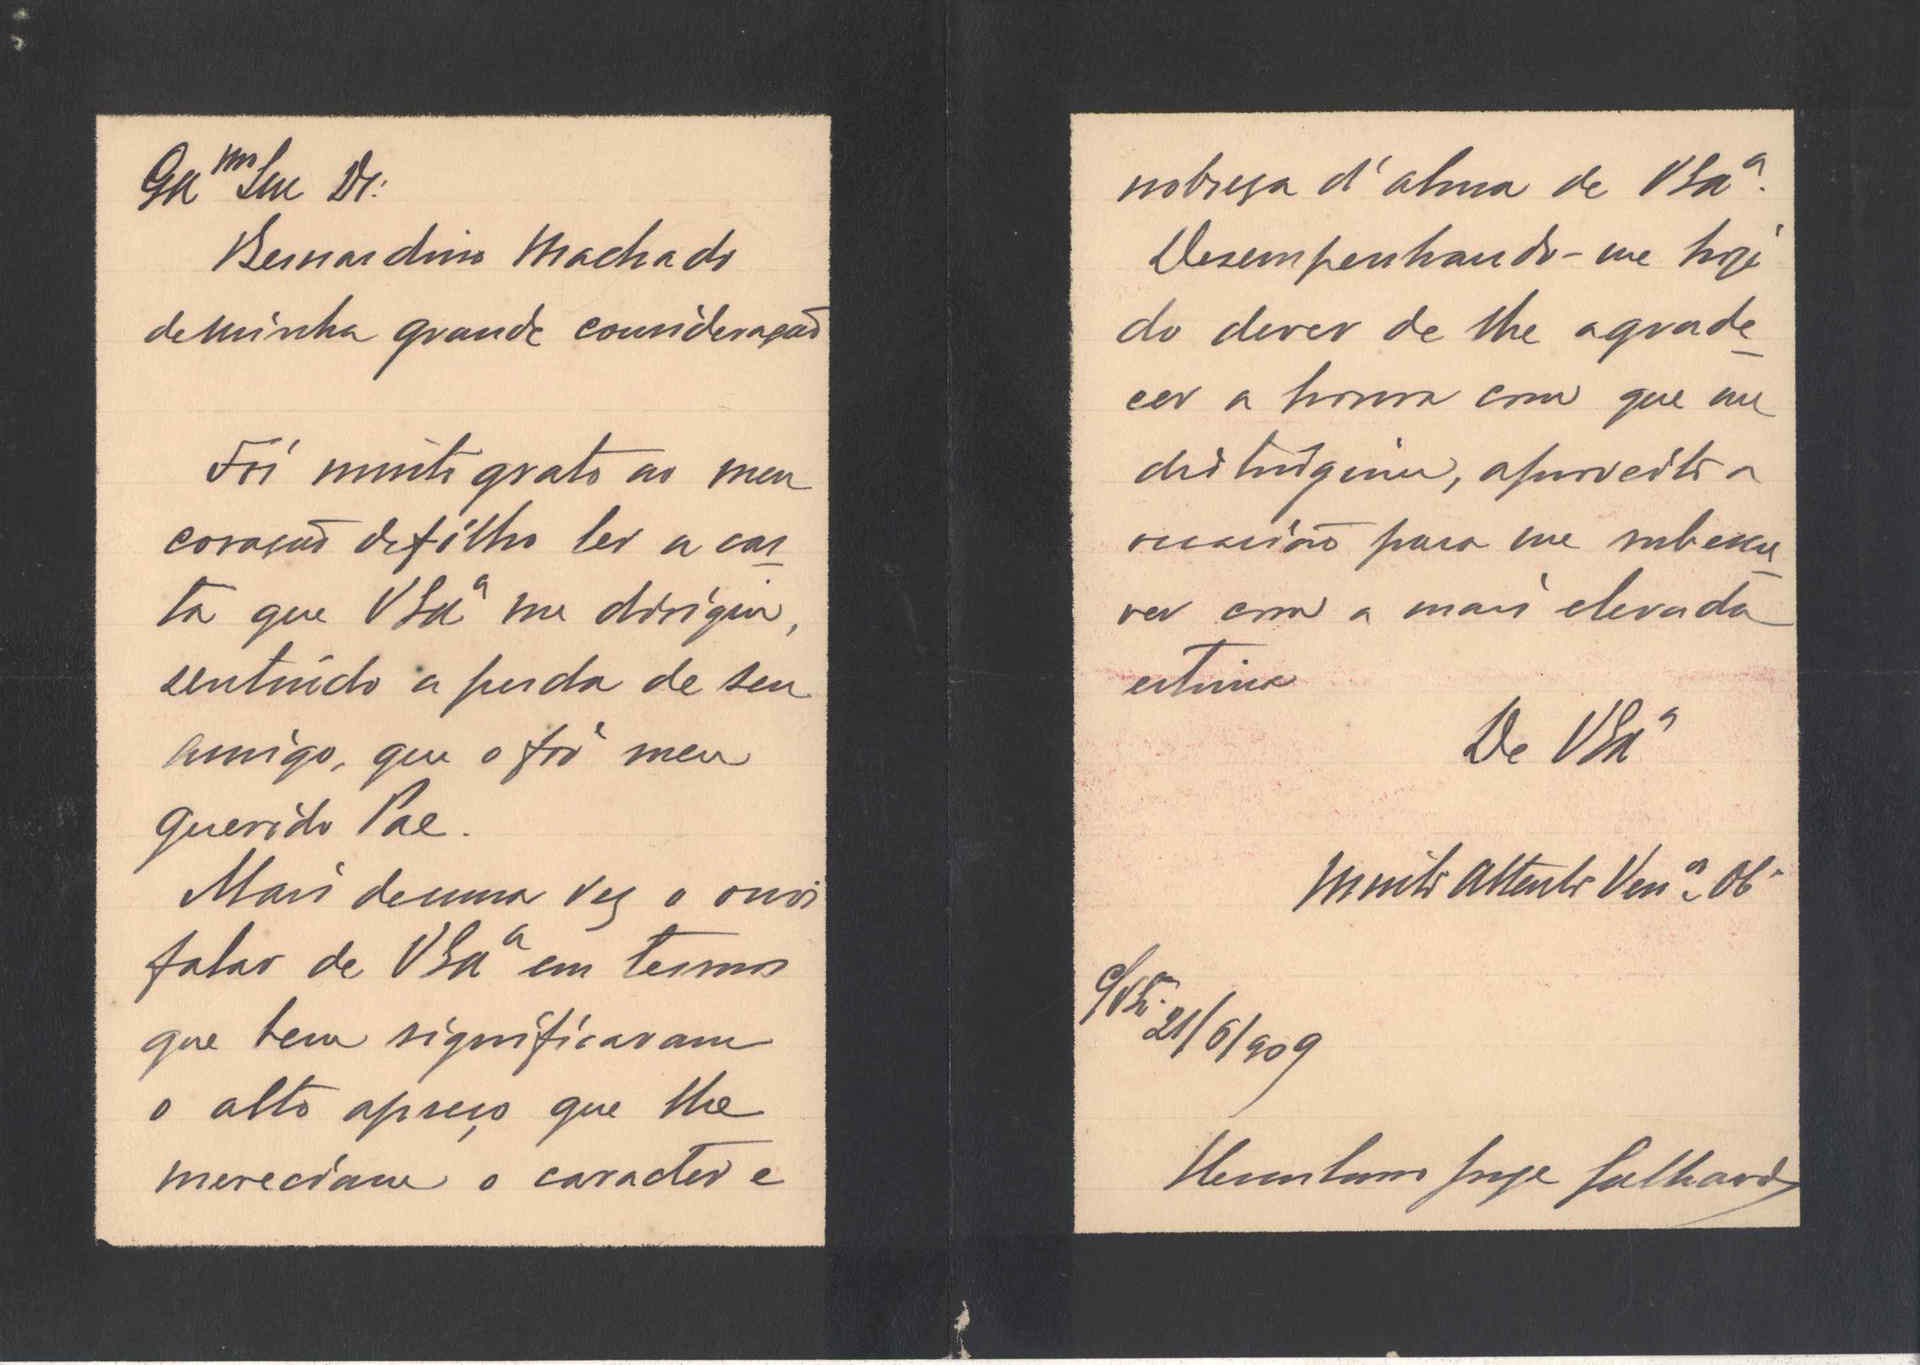 Exmo Snr Dr:
Bernardino Machado
de minha grande consideração
Foi muito grato ao meu
coração de filho ler a car
ta que VExa me dirigiu,
sentindo a perda de seu
amigo, que o foi meu
querido Pae.
Mais de uma vez o ouvi
falar de VExa em termos
que bem significavam
o alto apreço que lhe
mereciam o caracter e
nobreza d'alma de VExa.
Desempenhando-me hoje
do dever de lhe agrade
cer a honra com que me
distinguiu, aproveito a
occasião para me subscre
ver com a mais elevada
estima
De VExa
Muito Attento Venor Obo
21/6/909
Herculano Jorge Galhardo